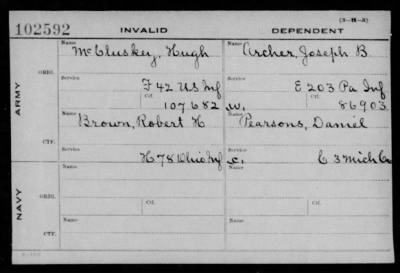 (3-11-3)
102592 INVALID DEPENDENT
Name Name
McCluskey, Hugh Archer, Joseph B
ARMY
ORIG. Service Service
F 42 US Inf E 203 Pa Inf
Ctf. Ctf.
107682 W. 86903
Name Name
Brown, Robert H Pearsons, Daniel
CTF. Service Service
H 78 Ohio Inf C. C 3 Mich Ca
NAVY
Name Name
ORIG. Ctf. Ctf.
Name Name
CTF.